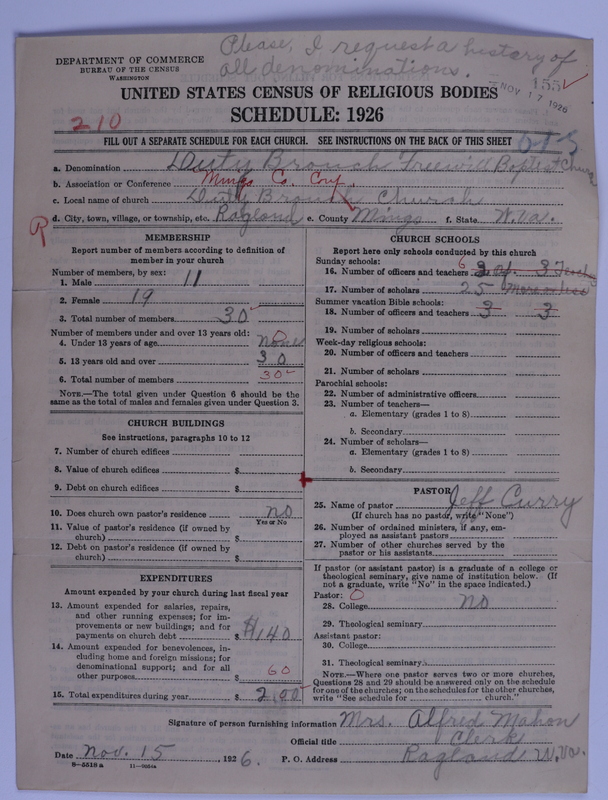 Please, I request a history of
all denominations.
DEPARTMENT OF COMMERCE
BUREAU OF THE CENSUS
WASHINGTON
155
NOV 17 1926
UNITED STATES CENSUS OF RELIGIOUS BODIES
SCHEDULE: 1926
210
FILL OUT A SEPARATE SCHEDULE FOR EACH CHURCH. SEE INSTRUCTIONS ON THE BACK OF THIS SHEET
a. Denomination Duty Branch Freewill Baptist Church
b. Association or Conference Mingo Co. Conf.
c. Local name of church Duty Branch Church
d. City, town, village, or township, etc. Ragland e. County Mingo f. State W.Va.
R
MEMBERSHIP
Report number of members according to definition of
member in your church
Number of members, by sex:
1. Male 11
2. Female 19
3. Total number of members 30
Number of members under and over 13 years old:
4. Under 13 years of age None
5. 13 years old and over 30
6. Total number of members 30
NOTE.—The total given under Question 6 should be
same as the total of males and females given under Question 3.
CHURCH BUILDINGS
See instructions, paragraphs 10 to 12
7. Number of church edifices
8. Value of church edifices $
9. Debt on church edifices $
10. Does church own pastor's residence no
Yes or No
11. Value of pastor's residence (if owned by
church) $
12. Debt on pastor's residence (if owned by
church) $
EXPENDITURES
Amount expended by your church during last fiscal year
13. Amount expended for salaries, repairs,
and other running expenses; for im-
provements or new buildings; and for
payments on church debt $ $140
14. Amount expended for benevolences, in-
cluding home and foreign missions; for
denominational support; and for all
other purposes $ 60
15. Total expenditures during year $
CHURCH SCHOOLS
Report here only schools conducted by this church
Sunday schools:
16. Number of officers and teachers 6 3
17. Number of scholars 25 more or less
Summer vacation Bible schools:
18. Number of officers and teachers 3 3
19. Number of scholars
Week-day religious schools:
20. Number of officers and teachers
21. Number of scholars
Parochial schools:
22. Number of administrative officers
23. Number of teachers—
a. Elementary (grades 1 to 8)
b. Secondary
24. Number of scholars—
a. Elementary (grades 1 to 8)
b. Secondary
PASTOR
25. Name of pastor Jeff Curry
(If church has no pastor, write "None")
26. Number of ordained ministers, if any, em-
ployed as assistant pastors
27. Number of other churches served by the
pastor or his assistants
If pastor (or assistant pastor) is a graduate of a college or
theological seminary, give name of institution below. (If
not a graduate, write "No" in the space indicated.)
Pastor: 0
28. College no
29. Theological seminary
Assistant pastor:
30. College
31. Theological seminary
NOTE.—Where one pastor serves two or more churches,
Questions 28 and 29 should be answered only on the schedule
for one of the churches; on the schedules for the other churches,
write "See schedule for church."
Signature of person furnishing information Mrs. Alfred Mahon
Official title Clerk
Date Nov. 15, 1926. P. O. Address Ragland W.Va.
8-5518 a